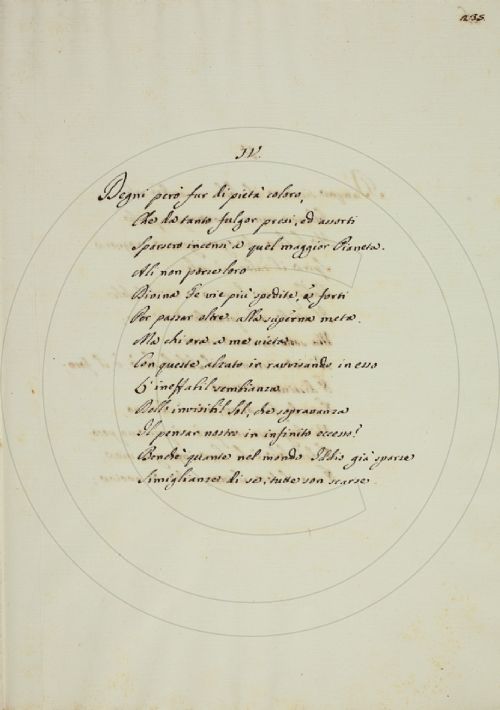 235
IV.
Degni però fur di pietà coloro,
Che da tanto fulgor presi, ed assorti
Sparsero incensi a quel maggior Pianeta.
Ali non porse loro
Divina Fe vie più spedite, e forti
Per passar oltre alla superna meta.
Ma chi ora a me vieta
Con queste alzato ir ravvisando in esso
L' ineffabil sembianza
Dell' invisibil Sol, che sopravanza
Il pensar nostro in infinito eccesso?
Benchè quante nel mondo Iddio già sparse
Simiglianze di se, tutte son scarse